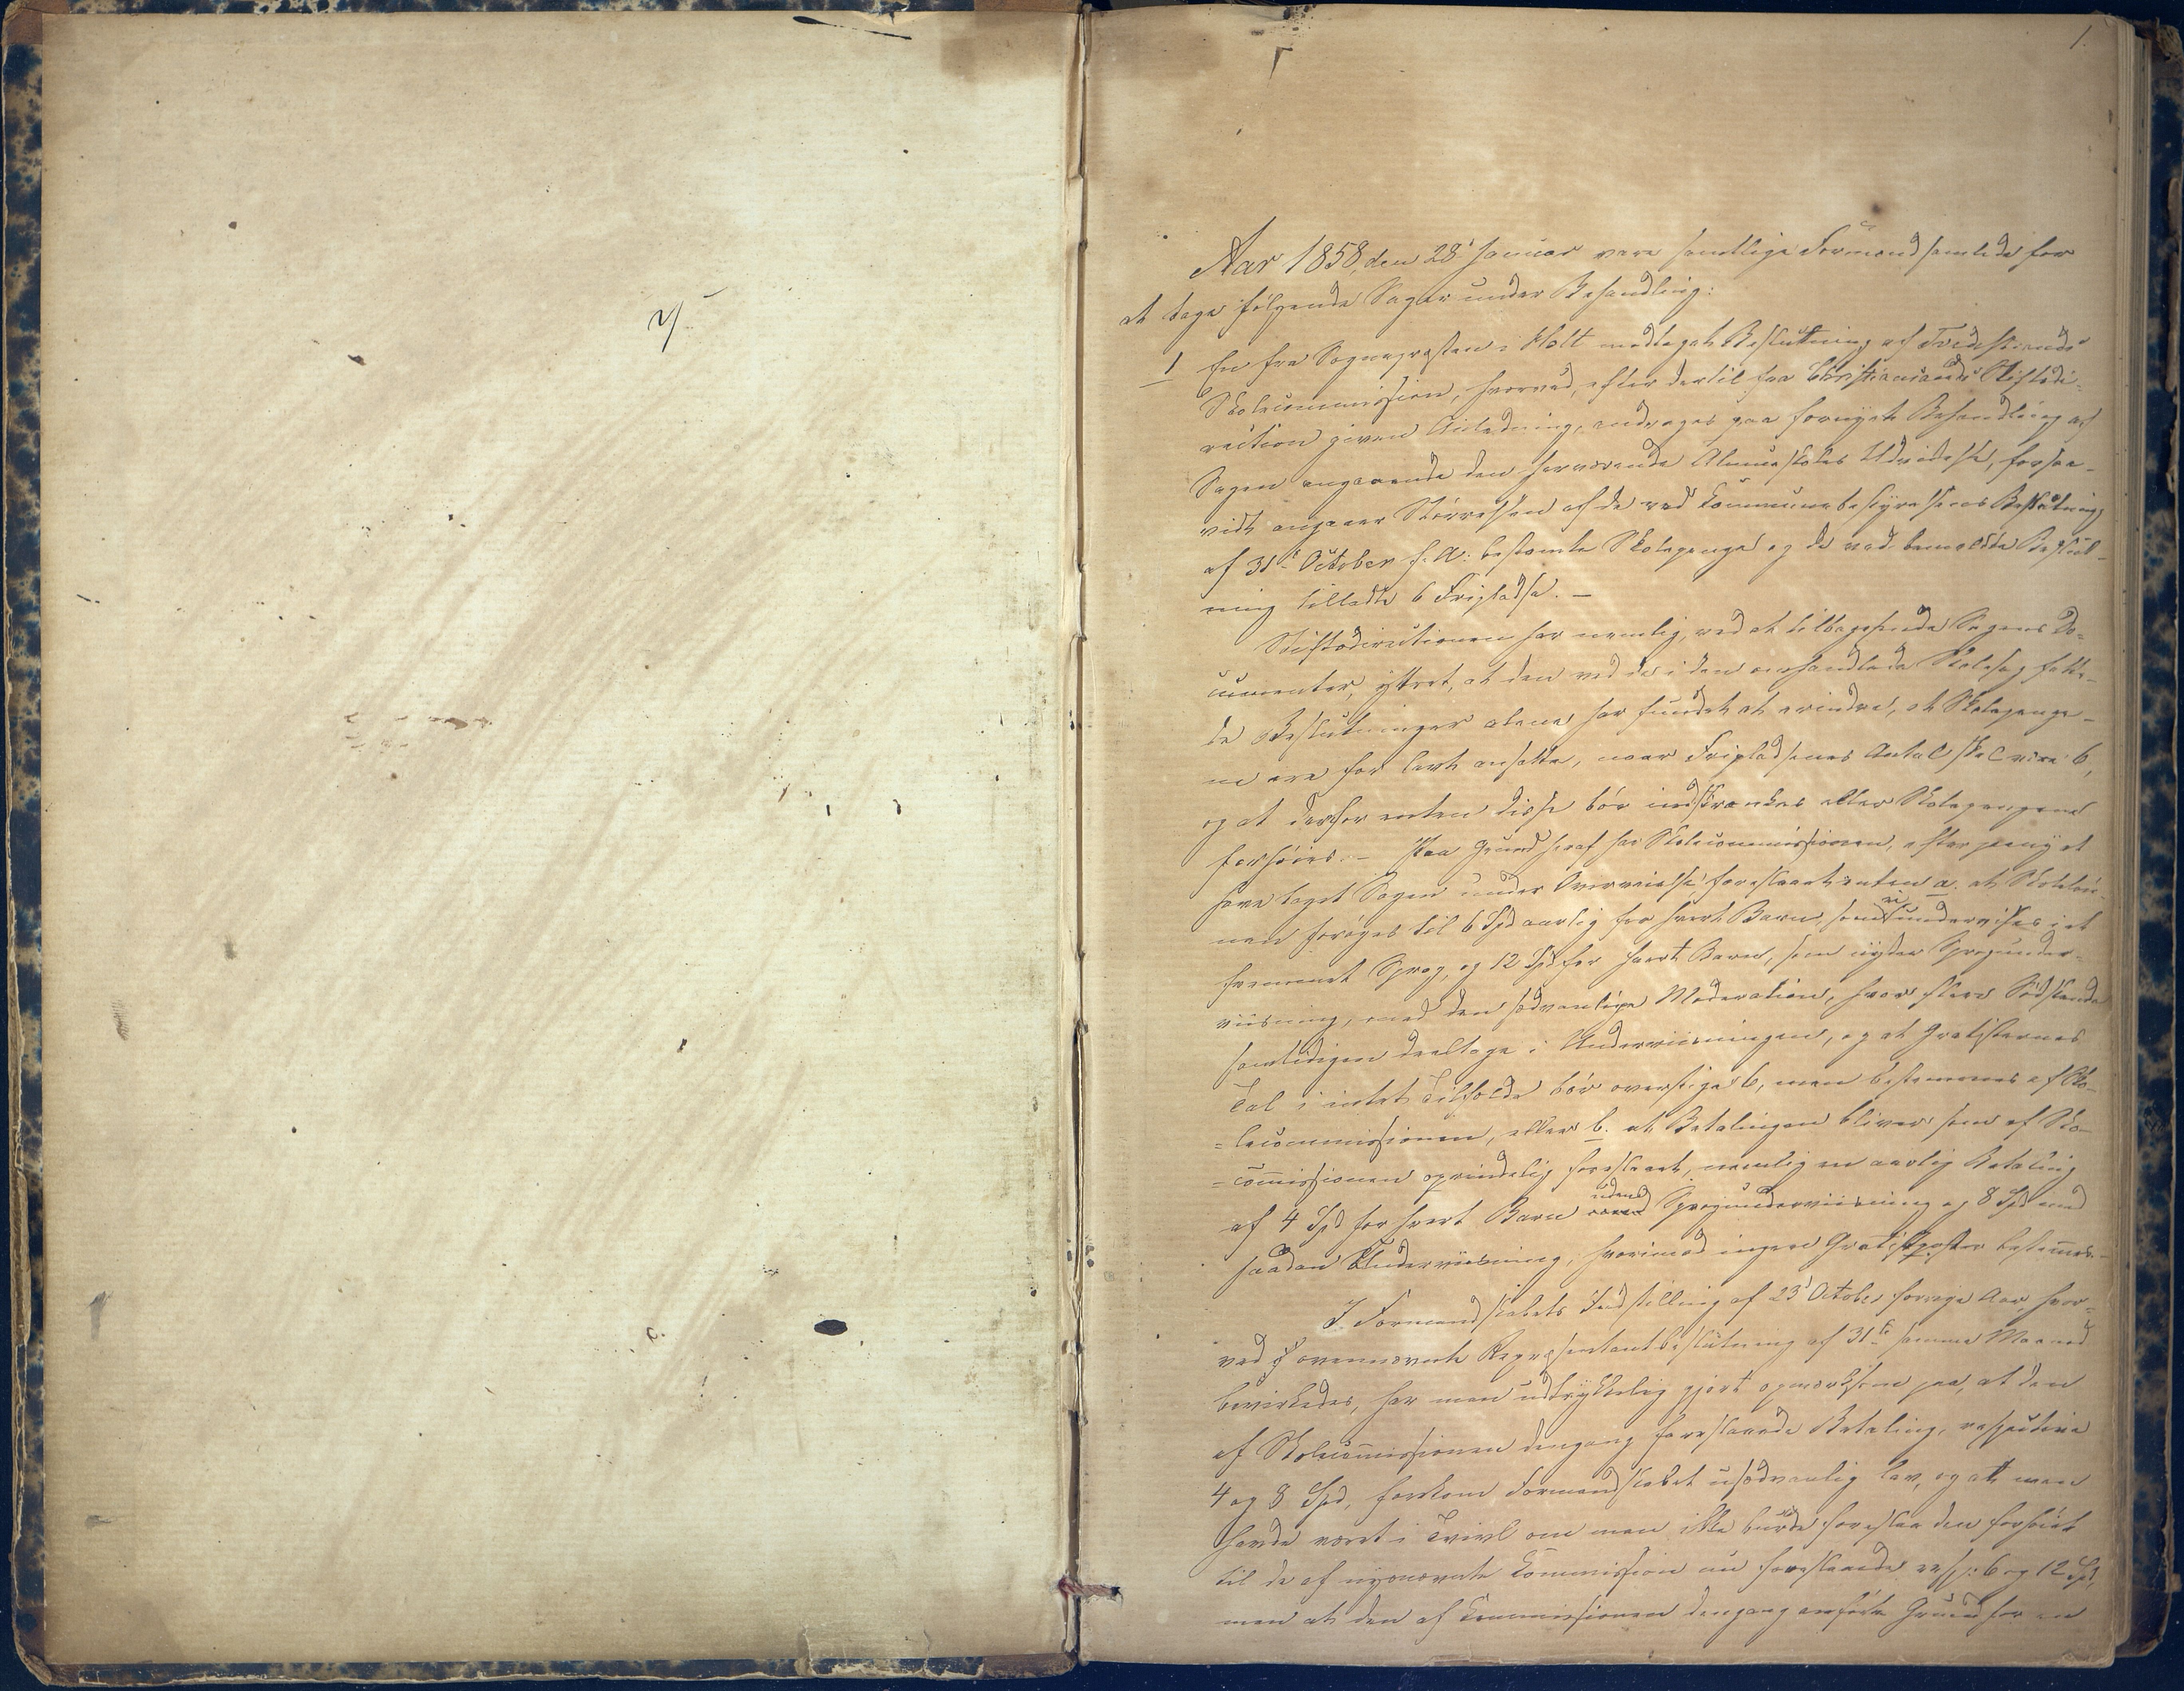 1.
Aar 1858, den 28' Januar vare samtlige Formænd samlede for
at tage følgende Sager under Behandling:
1 En fra Sognepræsten i Holt modtaget Beslutning af Tvedestrands
Skolecommission, hvorved, efter dertil fra Christiansands Stiftsdi-
rection given Anledning, andrages paa fornyet Behandling af
Sagen angaaende den herværende Almueskoles Udvidelse, forsaa-
vidt angaaer Størrelsen af de ved Communebestyrelsens Beslutning
af 31te October f. A. bestemte Skolepenge og de ved bemeldte Beslut-
ning tilladte 6 Fripladse. —
Stiftsdirectionen har nemlig, ved at tilbagesende Sagens Do-
cumenter, yttret, at den ved de i den omhandlede Skolesag fatte-
de Beslutninger alene har fundet at erindre, at Skolepenge-
ne ere for lavt ansatte, naar Fripladsenes Antal skal være 6,
og at derfor enten disse bør indskrænkes eller Skolepengene
forhøies. — Paa Grund heraf har Skolecommissionen, efter paany at
have taget Sagen under Overveielse, foreslaaet enten a. at Skoleløn-
nen forøges til 6 Spd aarlig for hvert Barn, som ei undervises i et
fremmet Sprog, og 12 Spd for hvert Barn, som nyder Sprogunder-
viisning, med den sædvanlige Moderation, hvor flere Sødskende
samtidigen deeltage i Underviisningen, og at Gratisternes
Tal i intet Tilfælde bør overstige 6, men bestemmes af Sko-
=lecommissionen, eller b. at Betalingen bliver som af Sko-
=commissionen oprindelig foreslaaet, nemlig en aarlig Betaling
af 4 Spd for hvert Barn uden Sprogunderviisning og 8 Spd med
saadan Underviisning, hvorimod ingen Gratistposter bestemmes.
I Formandskabets Indstilling af 23' October forrige Aar, hvor-
ved ovennævnte Repræsentantbeslutning af 31te samme Maaned
bevirkedes, har man udtrykkelig gjort opmærksom paa, at den
af Skolecommissionen dengang foreslaaede Betaling, respective
4 og 8 Spd, forekom Formandskabet usædvanlig lav, og at man
havde været i Tvivl om man ikke burde foreslaa den forhøiet
til de af nysnævnte Commission nu foreslaaede resp: 6 og 12 Spd,
men at den af Commissionen dengang anførte Grund for en